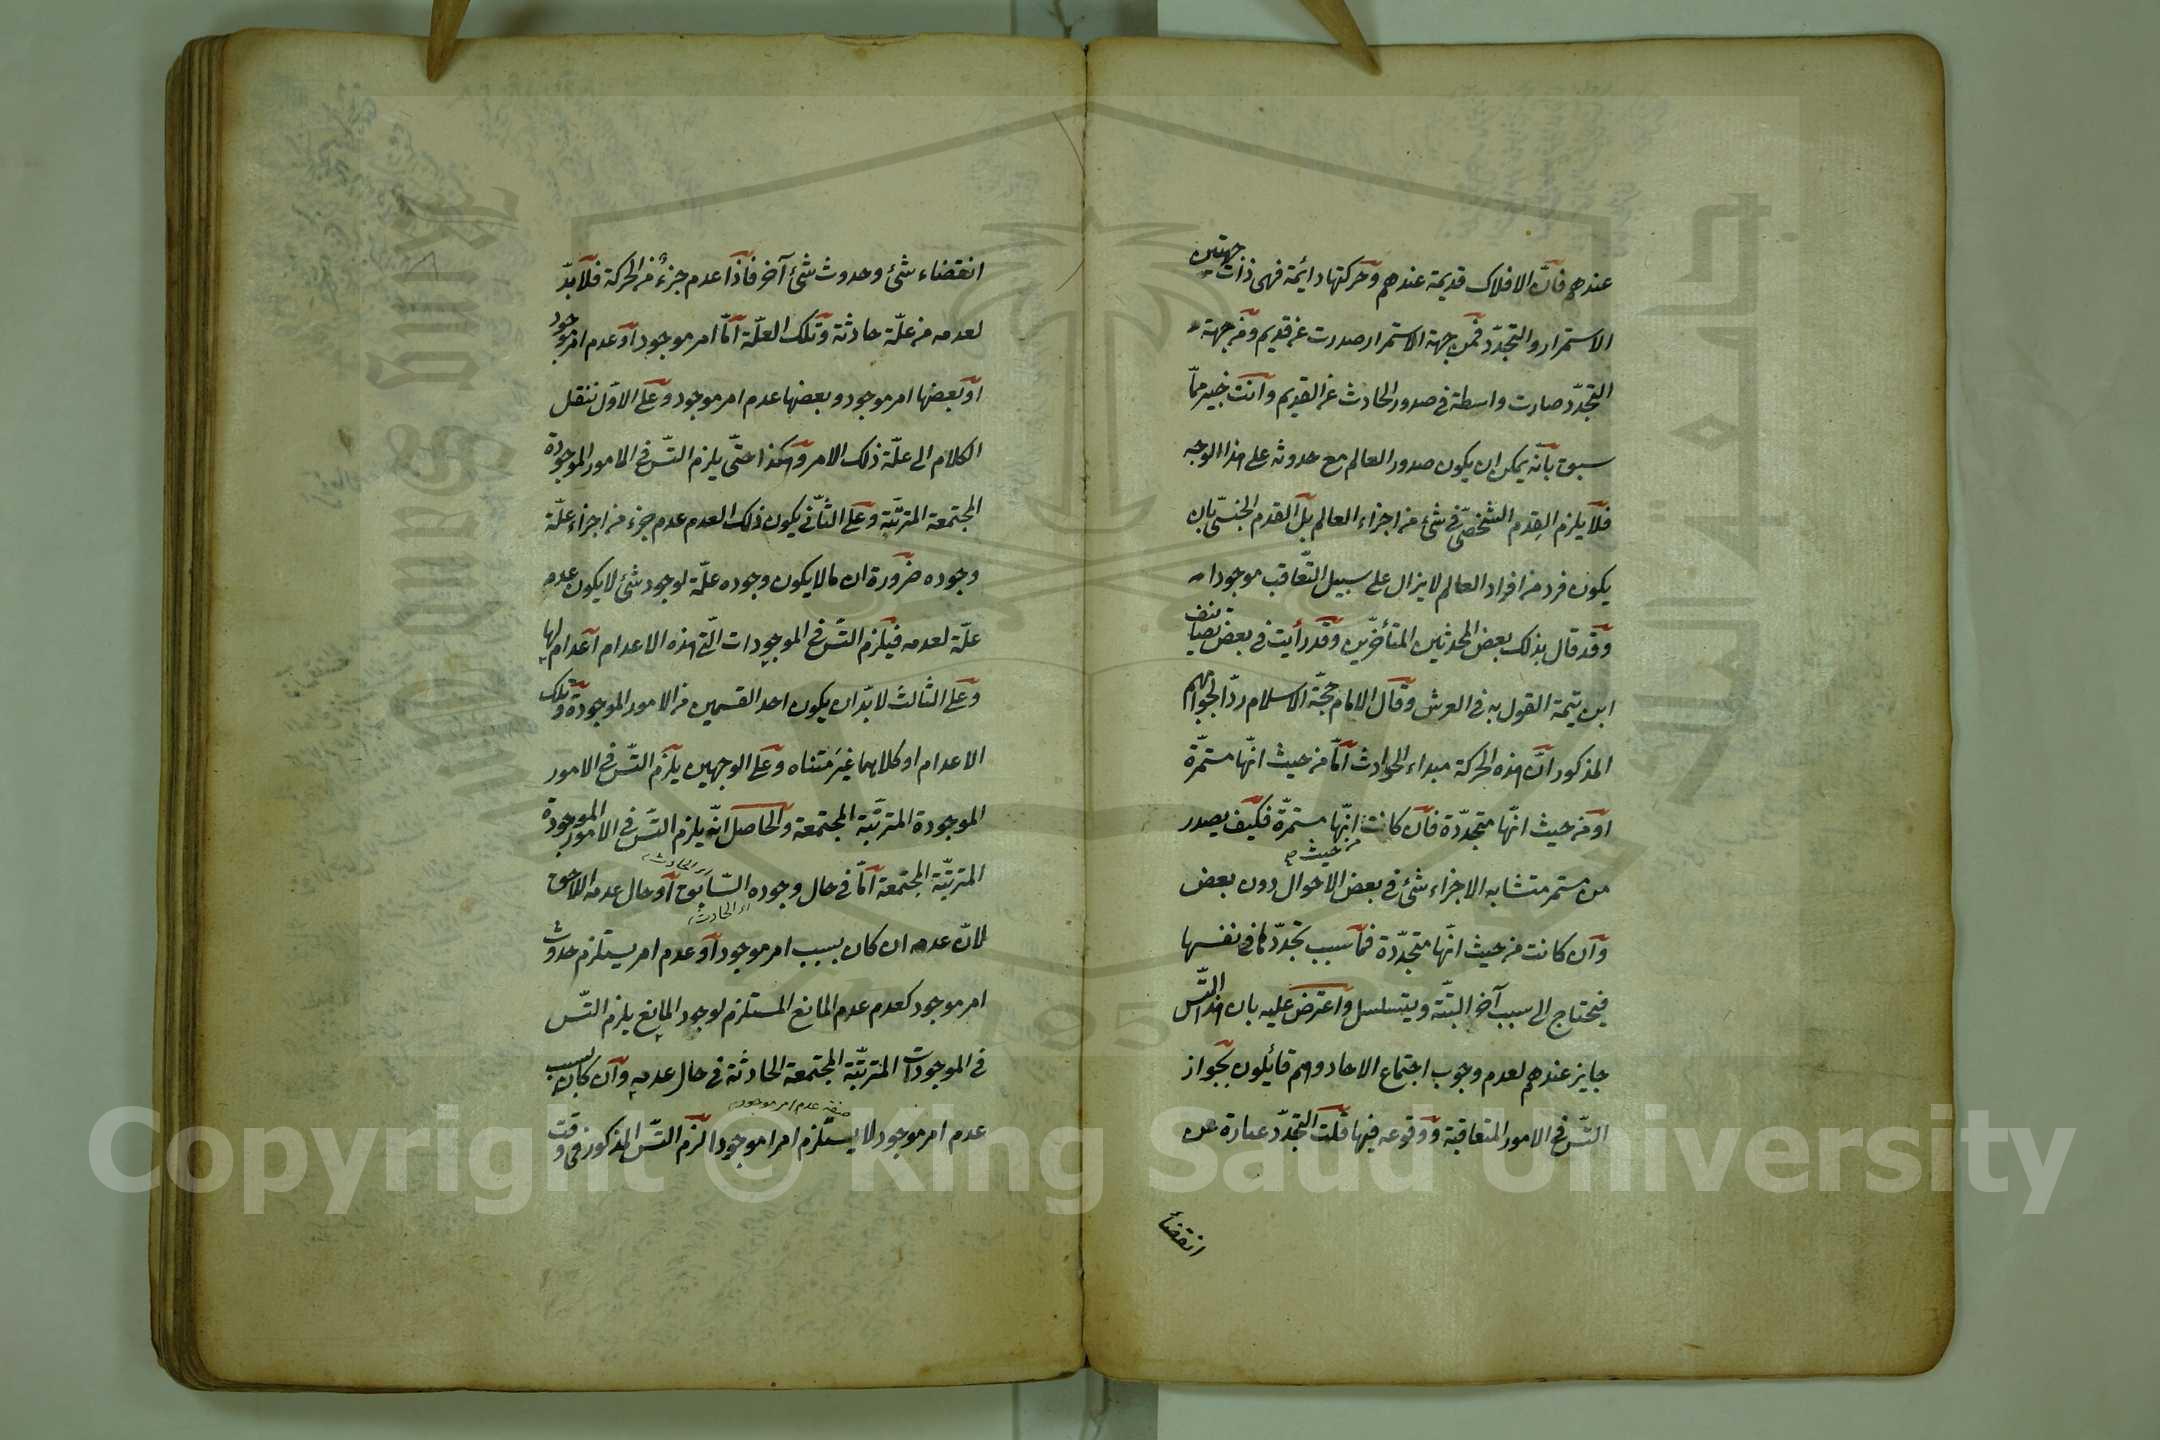 عندهم فانّ الافلاك قديمة عندهم وحركتها دائمة فهى ذات جهتين
الاستمرار والتجدّد فمن جهة الاستمرار صدرت عن قديم ومن جهة
التجدّد صارت واسطة فى صدور الحادث عن القديم وانت خبير ممّا
سبق بانّه يمكن ان يكون صدور العالم مع حدوثه على هذا الوجه
فلا يلزم القدم الشخصىّ فى شئ من اجزاء العالم بل القدم الجنسىّ بان
يكون فرد من افراد العالم لا يزال على سبيل التّعاقب موجودا
وقد قال بذلك بعض المحدثين المتأخرّين وقد رأيت فى بعض تصانيف
ابن تيمة القول به فى العرش وقال الامام حجّة الاسلام ردّا لجوابهم
المذكور انّ هذه الحركة مبداء الحوادث امّا من حيث انّها مستمرّة
او من حيث انّها متجدّدة فان كانت من حيث انّها مستمرّة فكيف يصدر
من مستمر متشابه الاجزاء شئ فى بعض الاحوال دون بعض
وان كانت من حيث انّها متجدّدة فما سبب تجدّدها فى نفسها
فيحتاج الى سبب آخر البتّة ويتسلسل واعترض عليه بان هذا التّس
جايز عندهم لعدم وجوب اجتماع الاحاد وهم قائلون بجواز
التّس فى الامور المتعاقبة ووقوعه فيها قلت التجدّد عبارة عن
انقضا
انقضاء شئ وحدوث شئ آخر فاذا عدم جزءٌ من الحركة فلا بدّ
لعدمه من علّة حادثة وتلك العلّة امّا امر موجود او عدم امر موجود
او بعضها امر موجود وبعضها عدم امر موجود وعلى الاوّل ننقل
الكلام الى علّة ذلك الامر وهكذا حتّى يلزم التّس فى الامور الموجودة
المجتمعة المترتّبة وعلى الثّانى يكون ذلك العدم عدم جزء من اجزاء علّة
وجوده ضرورة ان ما لا يكون وجوده علّة لوجود شئ لا يكون عدمه
علّة لعدمه فيلزم التّس فى الموجودات الّتى هذه الاعدام اعدام لها
وعلى الثالث لا بدّ ان يكون احد القسمين من الامور الموجودة وتلك
الاعدام او كلاهما غير متناه وعلى الوجهين يلزم التّس فى الامور
الموجودة المترتّبة المجتمعة والحاصل انّه يلزم التّس فى الامور الموجودة
المترتّبة المجتمعة امّا فى حال وجوده السّابق او حال عدمه اللاحق
اى الحادث
لانّ عدمه ان كان بسبب امر موجود او عدم امر يستلزم حدوث
امر موجود كعدم عدم المانع المستلزم لوجود المانع يلزم التّس
فى الموجودات المترتّبة المجتمعة الحادثة فى حال عدمه وان كان بسبب
صفة عدم امر موجود
عدم امر موجود لا يستلزم امرا موجودا لزم التّس المذكور فى وقت
Copyright © King Saud University